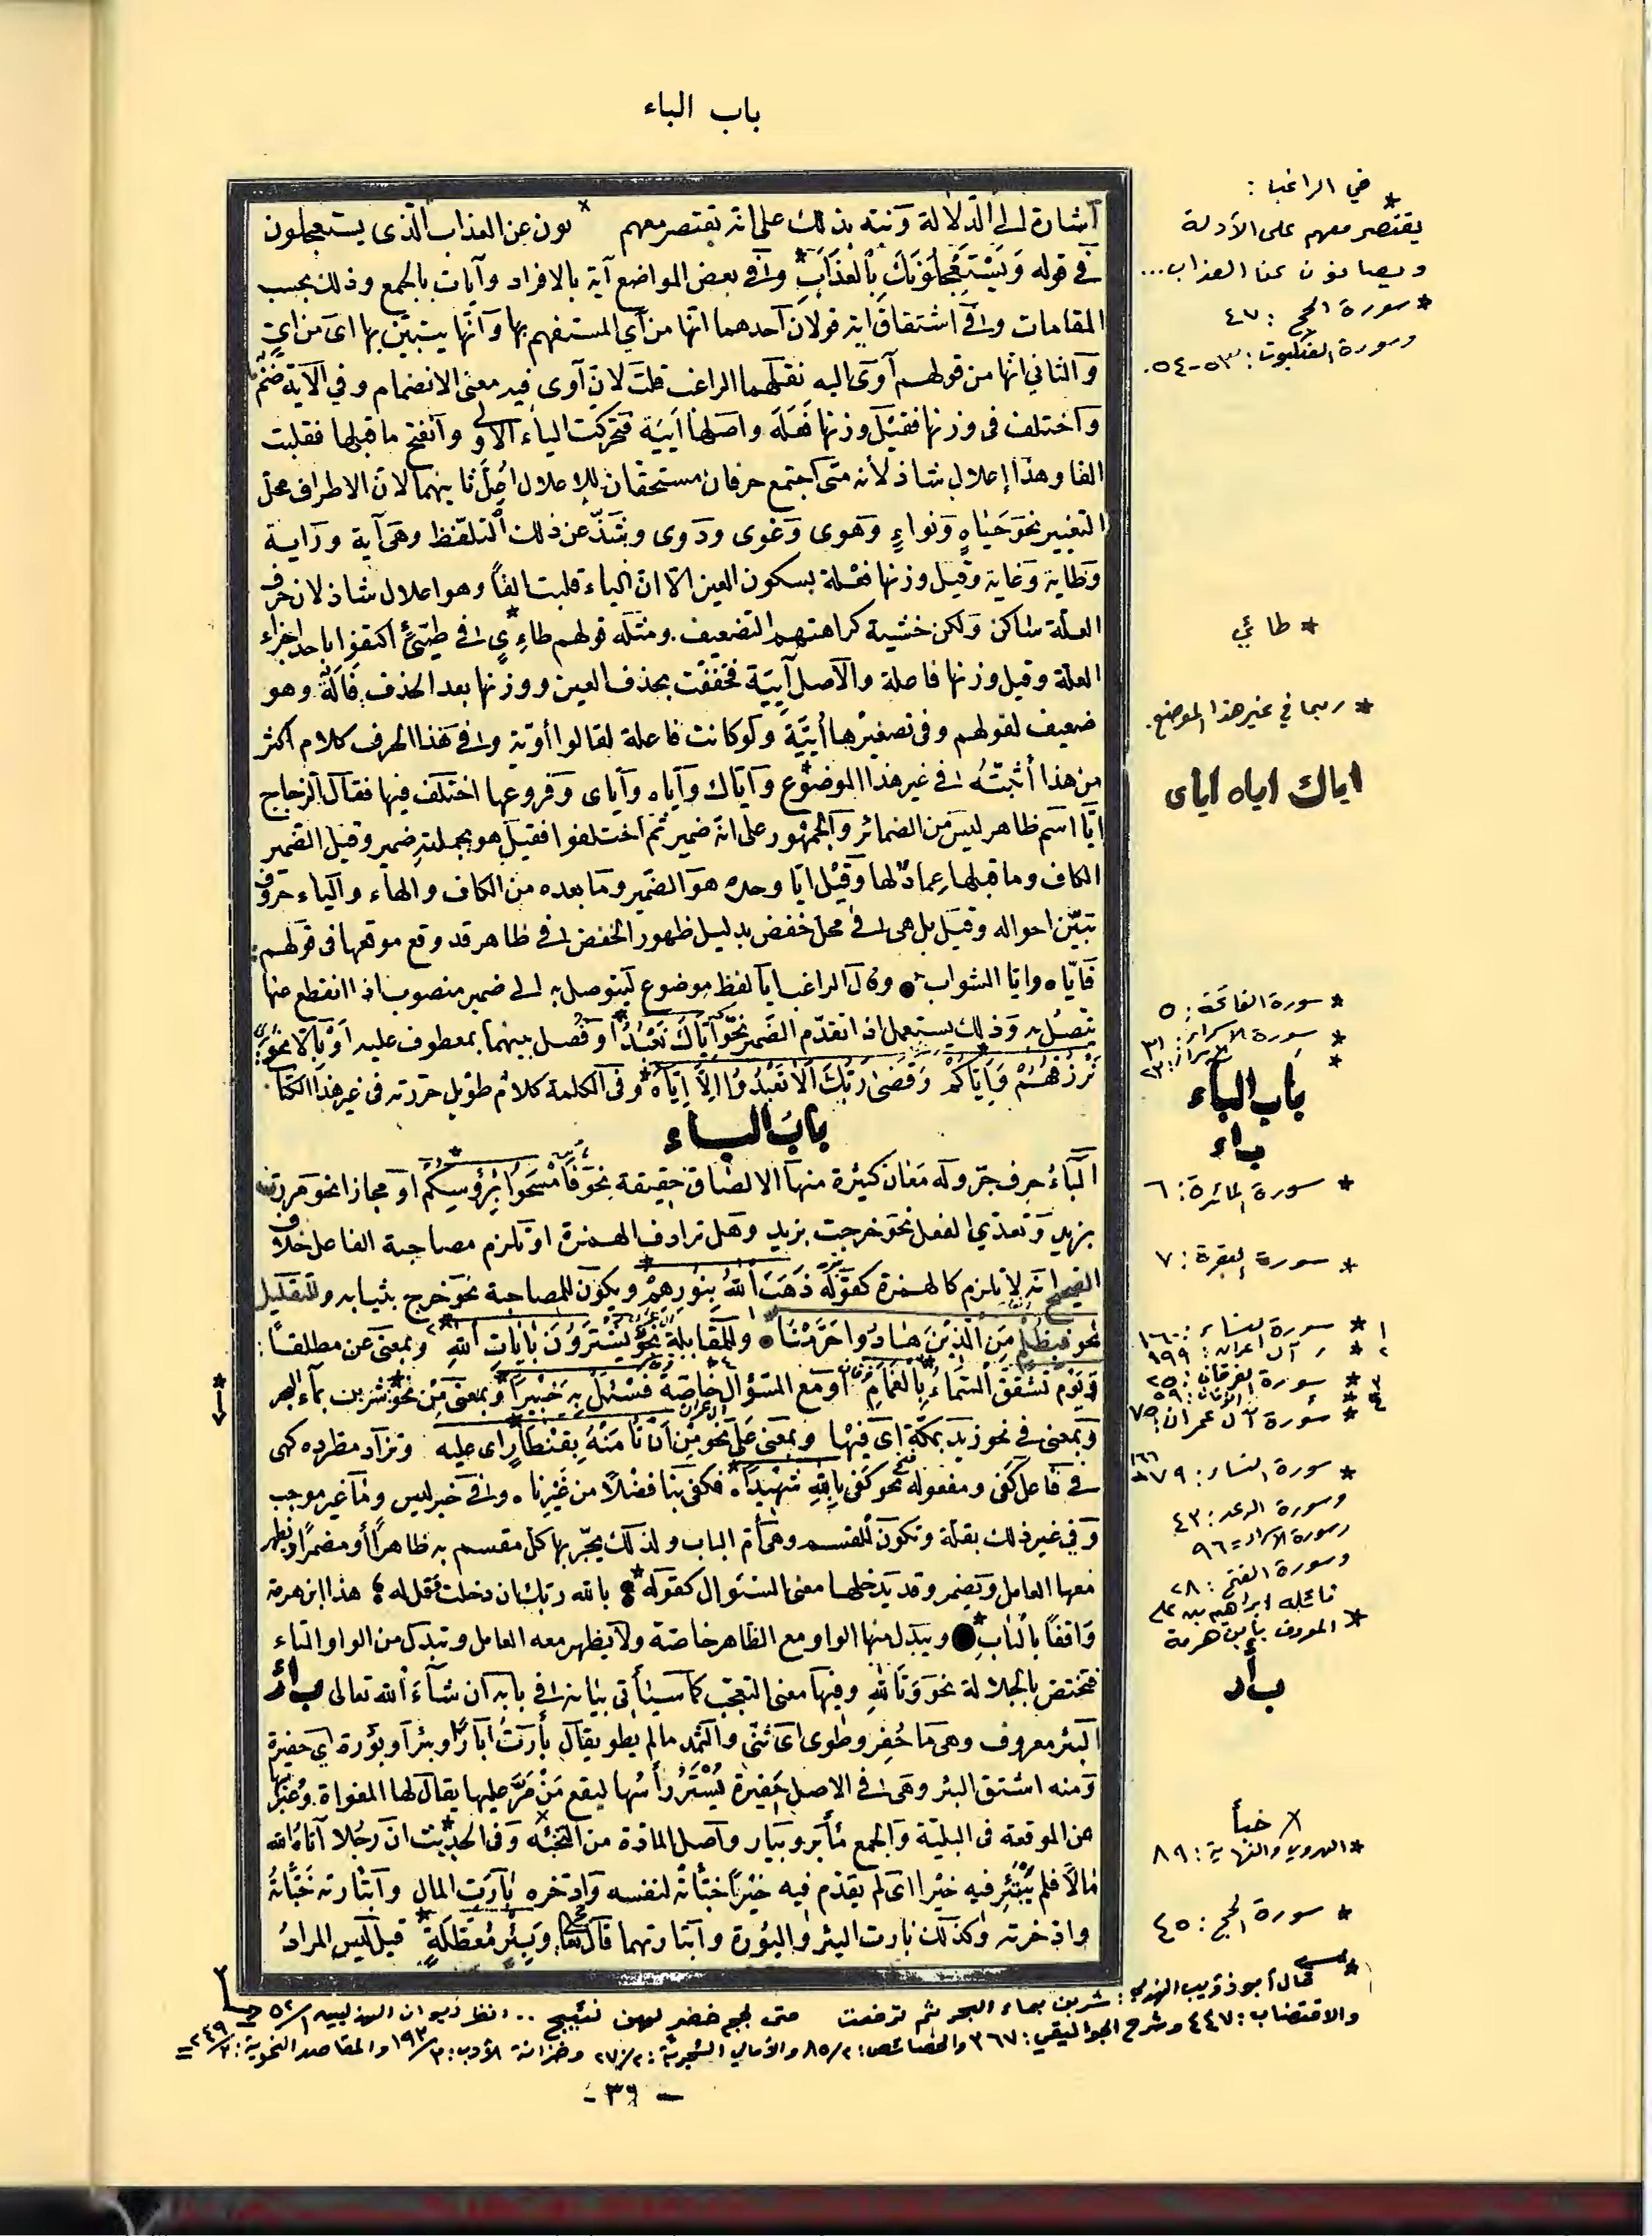 باب الباء
اشارة الى الدلالة ونبه بذلك على انه يقتصر معهم × نون عن العذاب الذى يستعجلون
في قوله وَيَسْتَعْجِلُونَكَ بِالْعَذَابِ* وفي بعض المواضع آية بالافراد وآيات بالجمع وذلك بحسب
المقامات وفي اشتقاق اية قولان احدهما انها من آي المستفهم بها وانها يتبين بها اى من اي
والثاني انها من قولهم آوى اليه نقلهما الراغب قلت لان آوى فيه معنى الانضمام وفي الآية ضم
واختلف فى وزنها فقيل وزنها فَعَلَة واصلها أيَيَة فتحركت الياء الاولى وانفتح ما قبلها فقلبت
الفا وهذا إعلال شاذ لأنه متى اجتمع حرفان مستحقان للاعلال اعل ثانيهما لان الاطراف محل
التغيير نحو حياة ونواء وهوى وغوى ودوى وشذ عن ذلك التلفظ وهى آية وراية
وطاية وغاية وقيل وزنها فعلة بسكون العين الا ان الياء قلبت الفاً وهو اعلال شاذ لان حرف
العلة ساكن ولكن خشية كراهتهم التضعيف ومثله قولهم طاءِيٍ* في طيّئٍ اكتفوا باحد اجزاء
العلة وقيل وزنها فاعلة والاصل آيِيَة فخففت بحذف العين ووزنها بعد الحذف فَالَة وهو
ضعيف لقولهم وفى تصغيرها أُيَيَّة ولو كانت فاعلة لقالوا أوية وفي هذا الحرف كلام اكثر
من هذا أثبتّه في غير هذا الموضوع* واياك واياه واياى وفروعها اختلف فيها فقال الزجاج
ايا اسم ظاهر ليس من الضمائر والجمهور على انه ضمير ثم اختلفوا فقيل هو بجملته ضمير وقيل الضمير
الكاف وما قبلها عماد لها وقيل ايا وحده هو الضمير وما بعده من الكاف والهاء والياء حروف
تبيّن احواله وقيل بل هى في محل خفض بدليل ظهور الخفض في ظاهر قد وقع موقعها فى قولهم:
فاياه وايا الشواب وقال الراغب ايا لفظ موضوع ليتوصل به الى ضمير منصوب اذا انقطع عنها
يتصل به وذلك يستعمل اذا تقدم الضمير نحو اِيَّاكَ نَعْبُدُ* او فصل بينهما بمعطوف عليه او بالا نحو:
نَرْزُقُهُمْ وَاِيَّاكُمْ* وَقَضَى رَبُّكَ اَلاَّ تَعْبُدُوُا اِلاَّ اِيَّاهُ* وفى الكلمة كلام طويل حررته فى غير هذا الكتا
باب الباء
الباء حرف جر وله معان كثيرة منها الالصاق حقيقة نحو فَامْسَحُوا بِرُؤُسِكُمْ* او مجازا نحو مررت
بزيد وتعدي الفعل نحو خرجت بزيد وهل ترادف الهمزة او تلزم مصاحبة الفاعل خلاف
الصحيح انه لا تلزم كالهمزة كقوله ذَهَبَ اللهُ بِنُورِهِمْ* ويكون للمصاحبة نحو خرج بثيابه وللتعليل
نحو فَبِظُلْمٍ مِنَ الَّذِيْنَ هَادُوا حَرَّمْنَا* وللمقابلة نحو يَشْتَرُونَ بِآيَاتِ اللهِ* وبمعنى عن مطلقاً:
وَيَوْمَ تَشَقَّقُ السَّمَاءُ بِالْغَمَامِ* او مع السؤال خاصة فَسْئَلْ بِهِ خَبِيْراً* وبمعنى من نحو شربن بماء البحر
وبمعنى في نحو زيد بمكة اى فيها وبمعنى على نحو مَنْ اِنْ تَأْمَنْهُ بِقِنْطَارٍ اى عليه* وتزاد مطرده كهى
في فاعل كفى ومفعوله نحو كَفَى بِاللهِ شَهِيْدًا* فكفى بنا فضلاً من غيرنا وفي خبر ليس وما غير موجب
وفي غير ذلك بقلة وتكون للقسم وهى أم الباب ولذلك يجرّ بها كل مقسم به ظاهراً أو مضمراً ويظهر
معها العامل ويضمر وقد يدخلها معنى السئوال كقوله* بالله ربك ان دخلت فقل له هذا ابن هرمة
واقفاً بالباب* ويبدل منها الواو مع الظاهر خاصة ولا يظهر معه العامل وتبدل من الواو التاء
فتختص بالجلالة نحو وتَاللهِ وفيها معنى التعجب كما سيأتى بيانه في بابه ان شاء الله تعالى بأر
البئر معروف وهى ما حُفِر وطوى اى ثني والثمد ما لم يطو يقال بأرت آباراً وبئرا وبؤرة اي حفيرة
ومنه اشتق البئر وهى في الاصل حفيرة يُسْتَرُ رأسُها ليقع مَنْ مَرَّ عليها يقال لها المغواة وعبر بها
عن الموقعة فى البلية والجمع مآبر وبيار واصل المادة من التخبئة× وفى الحديث* ان رجلا آتاه الله
مالاً فلم يبتئر فيه خيرا اى لم يقدم فيه خيراً خبّأه لنفسه وادخره بأرت المال وابتأرته خبّأته
وادخرته وكذلك بأرت البئر والبؤرة وابتأرتهما قال تعا وَبِئْرٍ مُعَطَّلَةٍ* قيل ليس المراد
* في الراغب:
يقتصر معهم على الأدلة
ويصانون عن العذاب...
* سورة الحج: ٤٧
وسورة العنكبوت: ٥٣-٥٤.
* طائي
* ربما في غير هذا الموضع.
اياك اياه اياى
* سورة الفاتحة: ٥
* سورة الاسراء: ٣١
* الاسراء: ٢٣
باب الباء
باء
* سورة المائدة: ٦
* سورة البقرة: ٧
١ * سورة النساء: ١٦٠
٢ * ر آل عمران: ١٩٩
٣ * سورة الفرقان: ٢٥
٤ * الفرقان: ٥٩
* سورة آل عمران: ٧٥
* سورة النساء: ٧٩ ١٦٦
وسورة الرعد: ٤٣
وسورة الاسراء = ٩٦
وسورة الفتح: ٢٨
قائله ابراهيم بن علي
* المعروف بابن هرمة
بأر
× خبأ
* الهروي والنهاية: ٨٩
* سورة الحج: ٤٥
* قال أبو ذؤيب الهذلي: شربن بماء البحر ثم ترفعت متى لجج خضر لهن نئيج .. انظر ديوان الهذليين ١/٥٢
والاقتضاب: ٤٤٧ وشرح الجواليقي: ٣٦٧ والخصائص: ٢/٨٥ والأمالي الشجرية: ٢/٢٧٠ وخزانة الأدب: ٣/١٩٣ والمقاصد النحوية: ٣/٢٤٩ =
- ٣٦ -